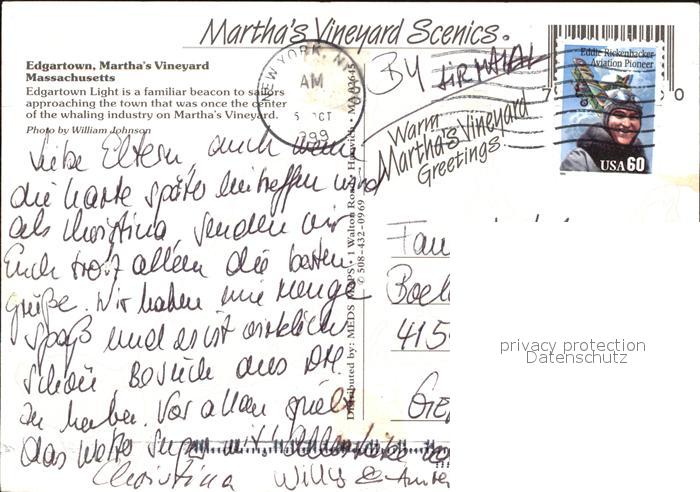 Martha's Vineyard Scenics.
Edgartown, Martha's Vineyard
Massachusetts
Edgartown Light is a familiar beacon to sailors
approaching the town that was once the center
of the whaling industry on Martha's Vineyard.
Photo by William Johnson
NEW YORK, NY
AM
5 OCT
BY AIR MAIL
Eddie Rickenbacker
Aviation Pioneer
USA 60
Warm
Martha's Vineyard
Greetings
Distributed by: MEDS MAPS • 1 Walton Road • Harwich • MA 02645
© 508-432-0969
Liebe Eltern auch wenn
die Karte später eintreffen wird
als Christina senden wir
Euch trotz allem die besten
Grüße. Wir haben eine Menge
Spaß und es ist wirklich
schön Besuch aus DM.
zu haben. Vor allem spielt
das Wetter super mit
Christina Willy &
Fam
415
privacy protection
Datenschutz